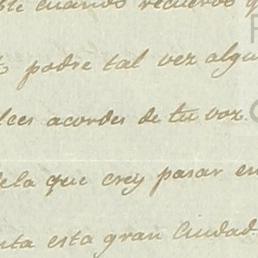 ble cuando recuerdo q
podre tal vez algu
lces acordes de tu voz.
dela que crey pasar en
nta esta gran Ciudad.